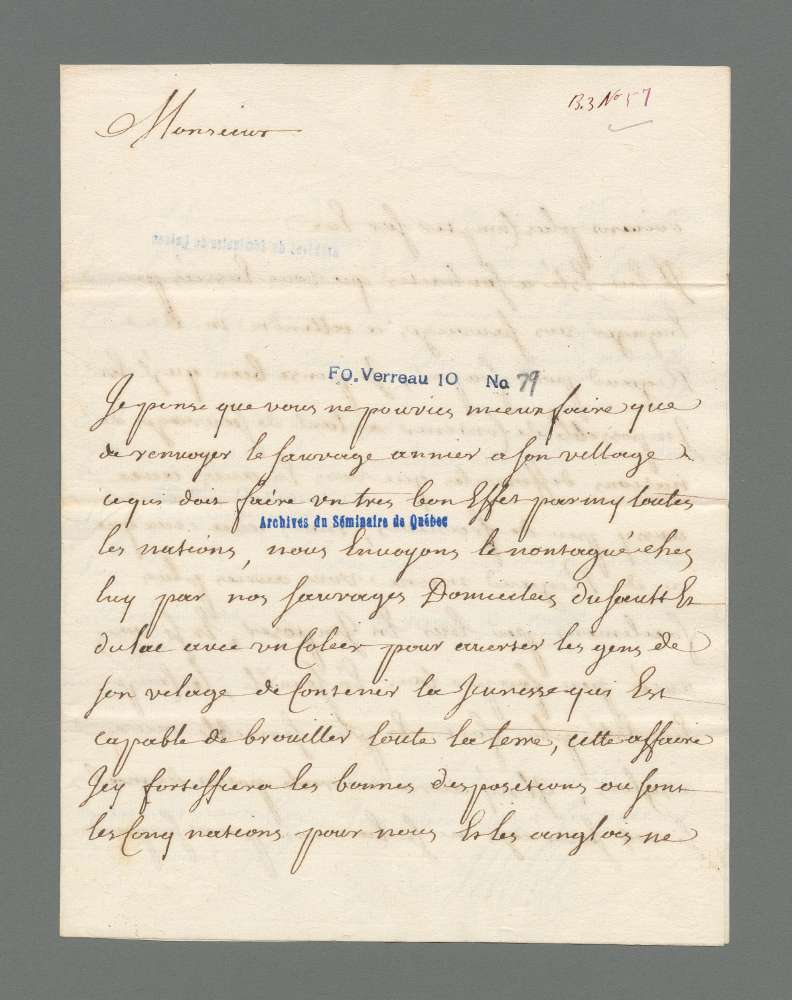 B.3 No 57
Monsieur
FO. Verreau 10 No 79
Je pense que vous ne pouviés mieux faire que
de renvoyer le sauvage annier a son village
ce qui doit faire un tres bon Effet parmy toutes
Archives du Séminaire de Québec
les nations, nous Envoyons le nontagué chez
luy par nos sauvages Domicilés du sault Et
du lac avec un Colier pour avertir les gens de
son vilage de Contenir la Jeunesse qui Est
capable de brouiller toute la terre, cette affaire
Icy fortiffiera les bonnes dispositions ou sont
les Cinq nations pour nous Et les anglois ne